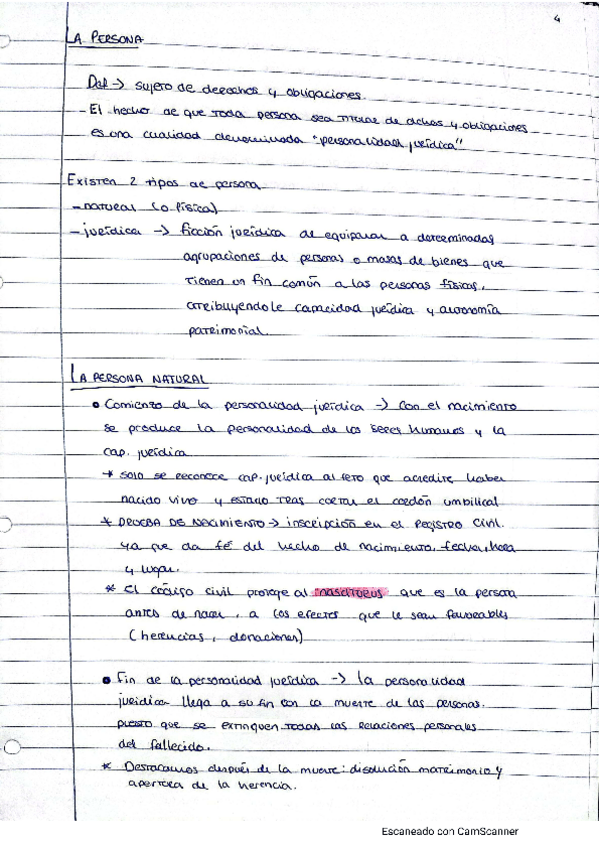 4
LA PERSONA
Def -> sujeto de derechos y obligaciones.
- El hecho de que toda persona sea titular de dchos y obligaciones
es una cualidad denominada "personalidad jurídica"
Existen 2 tipos de persona
- natural (o física)
- jurídica -> ficción jurídica de equiparar a determinadas
agrupaciones de personas o masas de bienes que
tienen un fin común a las personas físicas,
atribuyéndole capacidad jurídica y autonomía
patrimonial.
LA PERSONA NATURAL
• Comienzo de la personalidad jurídica -> con el nacimiento
se produce la personalidad de los seres humanos y la
cap. jurídica
* solo se reconoce cap. jurídica al feto que acredite haber
nacido vivo y estado tras cortar el cordón umbilical
* PRUEBA DE NACIMIENTO -> inscripción en el Registro Civil.
ya que da fé del hecho de nacimiento, fecha, hora
y lugar.
* El código civil protege al nasciturus que es la persona
antes de nacer, a los efectos que le sean favorables
(herencias, donaciones)
• Fin de la personalidad jurídica -> la personalidad
jurídica llega a su fin con la muerte de las personas.
puesto que se extinguen todas las relaciones personales
del fallecido.
* Destacamos después de la muerte: disolución matrimonio y
apertura de la herencia.
Escaneado con CamScanner